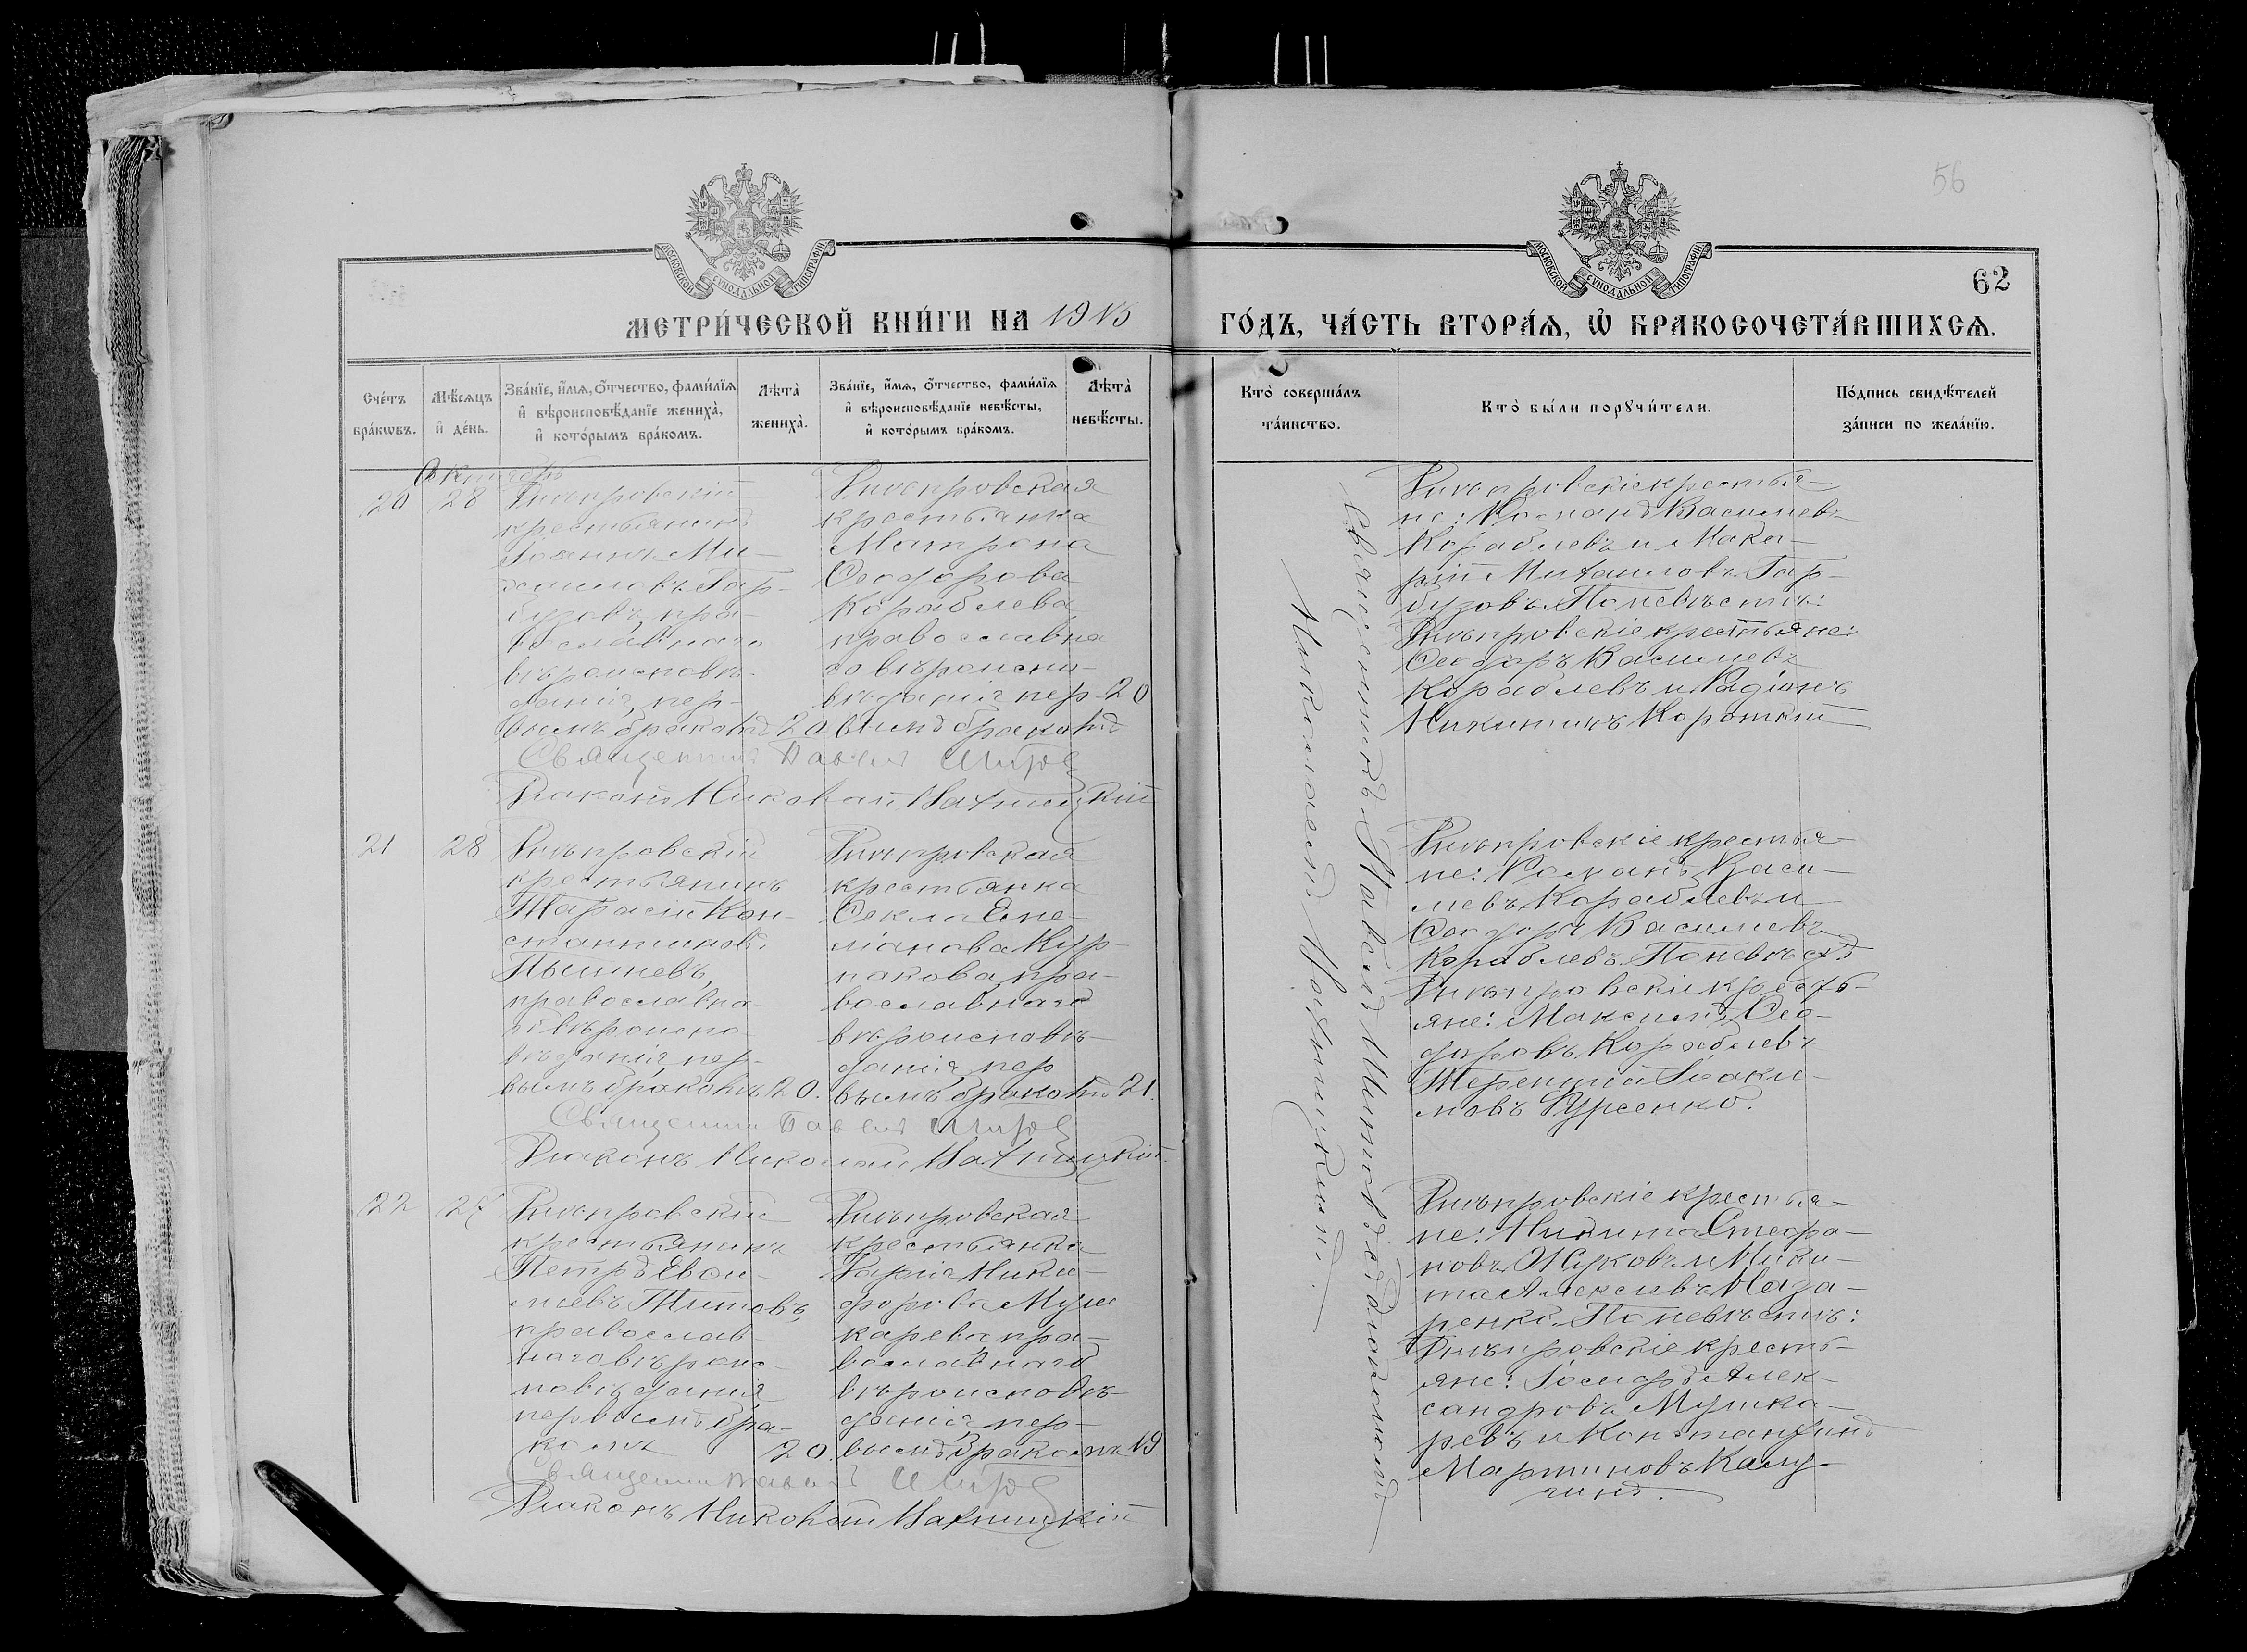 56
МОСКОВСКОЙ СѴНОДАЛЬНОЙ ТИПОГРАФІИ
МОСКОВСКОЙ СѴНОДАЛЬНОЙ ТИПОГРАФІИ
62
МЕТРИ́ЧЕСКОЙ КНИ́ГИ НА 1915
ГО́ДЪ, ЧА́СТЬ ВТОРА́Ѧ, Ѽ БРАКОСОЧЕТА́ВШИХСѦ.
Сче́тъ бра́кѡвъ.
Мѣ́сѧцъ и҆ де́нь.
Зва́нїе, и҆́мѧ, ѻ҆́тчество, фами́лїѧ
и҆ вѣроисповѣ́данїе жениха̀,
и҆ кото́рымъ бра́комъ.
Лѣ́та̀ жениха̀.
Зва́нїе, и҆́мѧ, ѻ҆́тчество, фами́лїѧ
и҆ вѣроисповѣ́данїе невѣ́сты,
и҆ кото́рымъ бра́комъ.
Лѣ́та̀ невѣ́сты.
Кто̀ соверша́лъ
та́инство.
Кто̀ бы́ли порꙋчи́тели.
По́дпись свидѣ́телей
за́писи по жела́нїю.
Октябрь
20
28
Днѣпровскій
крестьянинъ
Іоаннъ Ми-
хаиловъ Гар-
бузовъ, пра-
вославнаго
вѣроисповѣ-
данія, пер-
вымъ бракомъ
20
Днѣпровская
крестьянка
Матрона
Ѳеодорова
Кораблева
православна
го вѣроиспо-
вѣданія пер-
вымъ бракомъ
20
Днѣпровскіе крестья-
не: Романъ Василіевъ
Кораблевъ и Мака-
рій Михаиловъ Гар-
бузовъ. По невѣстѣ:
Днѣпровскіе крестьяне:
Ѳеодоръ Василіевъ
Кораблевъ и Родіонъ
Никитинъ Короткій
Священникъ Павелъ
Діаконъ Николай
21
28
Днѣпровскій
крестьянинъ
Тарасій Кон-
стантиновъ
Пышневъ,
православна
го вѣроиспо-
вѣданія, пер-
вымъ бракомъ
20.
Днѣпровская
крестьянка
Ѳекла Еме-
ліанова Кур-
накова, пра-
вославнаго
вѣроисповѣ-
данія пер
вымъ бракомъ
21.
Днѣпровскіе крестья-
не: Романъ Васи-
лiевъ Кораблевъ и
Ѳеодоръ Василіевъ
Кораблевъ. По невѣстѣ
Днѣпровскіе кресть-
яне: Максимъ Ѳео-
доровъ Кораблевъ
Терентій Іоаки-
мовъ
Священникъ Павелъ
Діаконъ Николай
22
Днѣпровскій
крестьянинъ
Петръ
Титовъ,
православ-
наго вѣроис-
повѣданія
первымъ бра-
комъ
20.
Днѣпровская
крестьянка
Дарія Ники-
форова Муш
карева, пра-
вославнаго
вѣроисповѣ-
данія, пер-
вымъ бракомъ
19
Днѣпровскіе крестья-
не: Никита Стефа-
новъ Жуковъ и Ники-
та Алексіевъ Наза-
ренко. По невѣстѣ:
Днѣпровскіе кресть-
яне: Іосифъ Алек-
сандровъ Мушка-
ревъ и Константинъ
Мартиновъ Калу-
гинъ.
Священникъ Павелъ
Діаконъ Николай
Священникъ Павелъ съ Діакономъ
Николаемъ